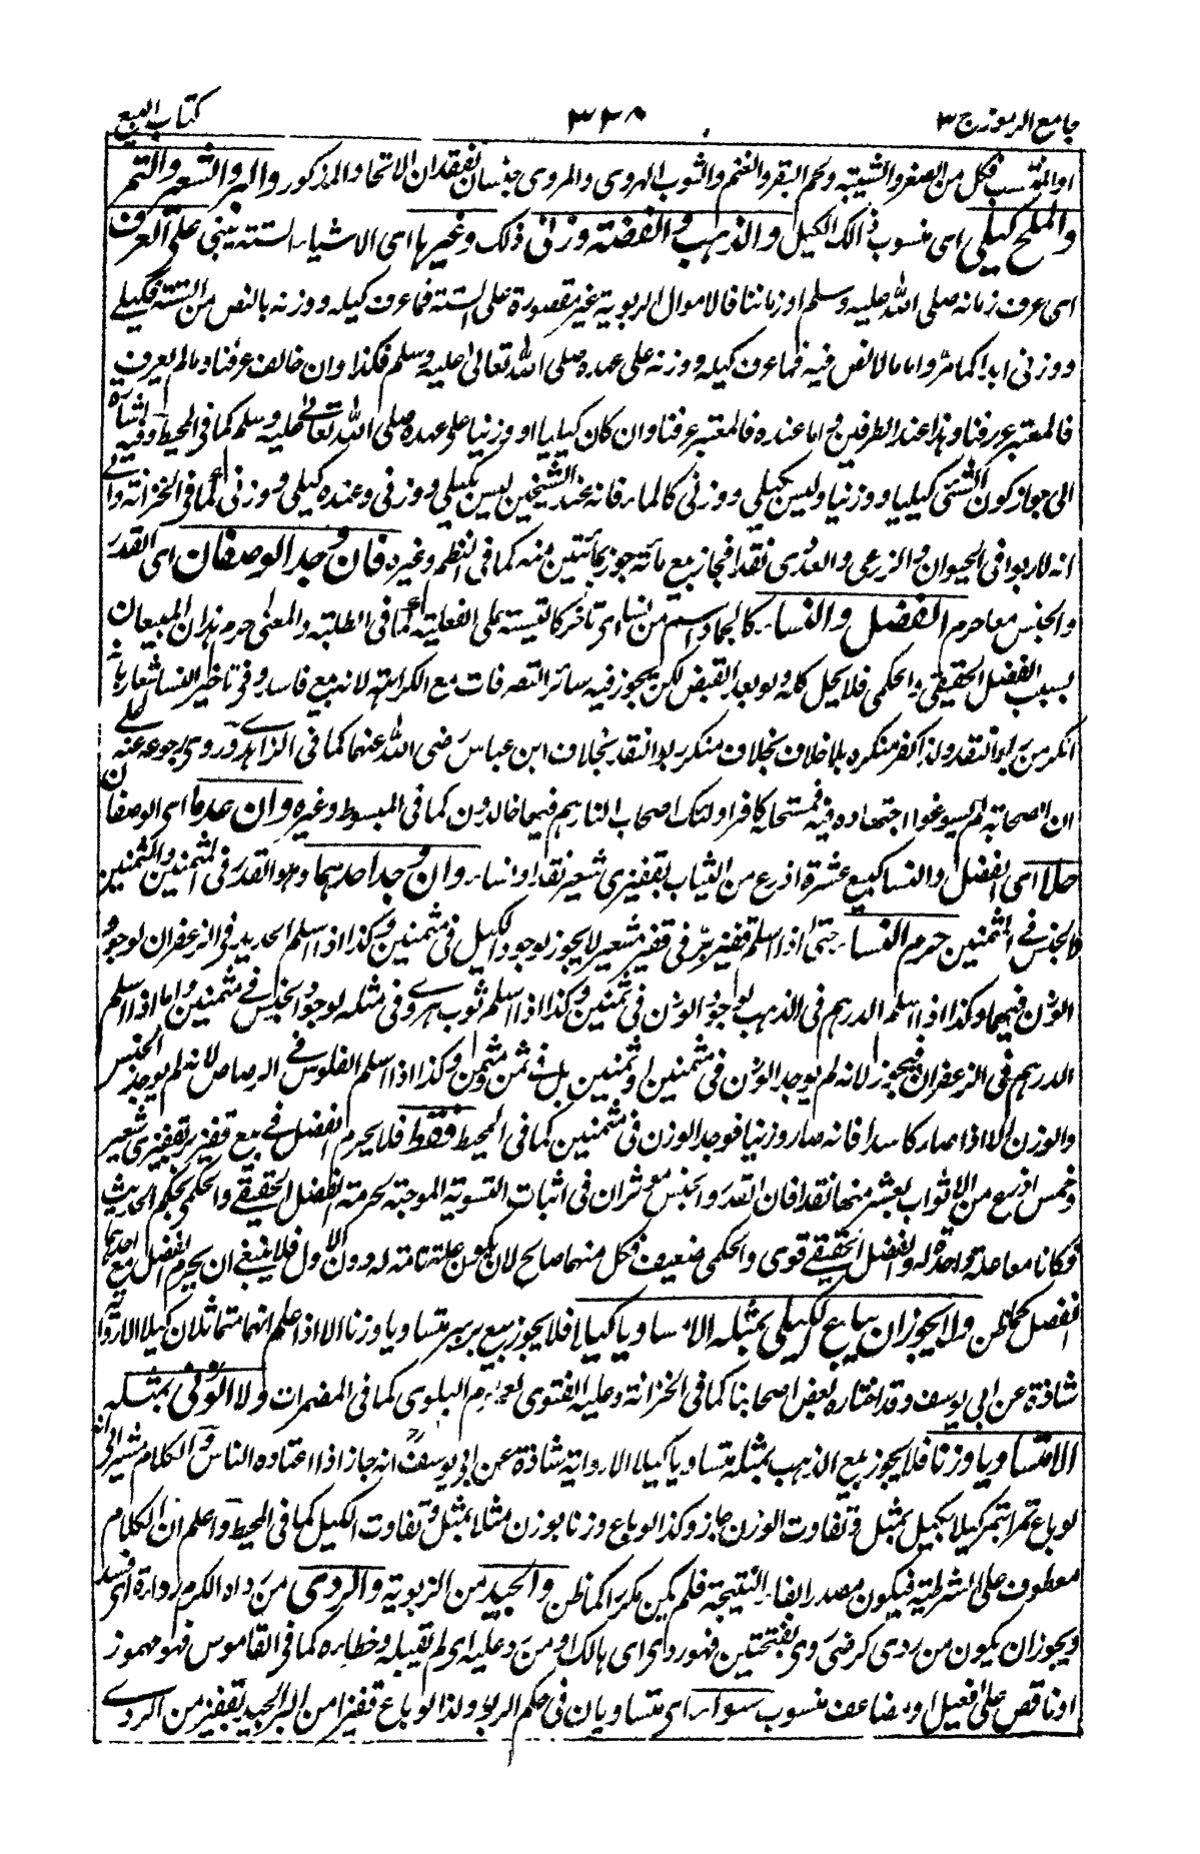 جامع الرموز ج ٣ ٣٢٨ كتاب البيع
او المنتسب فكل من الصفر والشبه ولحم البقر والغنم والثوب الهروى والمروى جنسان لفقدان الاتحاد المذكور والبر والشعير والتمر
والملح كيلى اى منسوب ذلك الى الكيل والذهب والفضة وزنى ذلك وغيرها اى الاشياء الستة يبنى على العرف
اى عرف زمانه صلى الله عليه وسلم او زماننا فالاموال الربوية غير مقصورة على الستة فما عرف كيله ووزنه بالنص من الستة فكيلى
ووزنى ابدا كما مر واما ما لا نص فيه فما عرف كيله ووزنه على عهده صلى الله تعالى عليه وسلم فكذا وان خالف عرفنا وما لم يعرف
فالمعتبر عرفنا وهذا عند الطرفين واما عنده فالمعتبر عرفنا وان كان كيليا او وزنيا على عهده صلى الله تعالى عليه وسلم كما فى المحيط وفيه اشارة
الى جواز كون الشئ كيليا ووزنيا وليس بكيلى ووزنى كالماء فانه عند الشيخين ليس بكيلى ووزنى وعنده كيلى ووزنى كما فى الخزانة والى
انه لا ربوا فى الحيوان والزرعى والعددى نقدا فجاز بيع مائة جوز بمائتين منه كما فى النظم وغيره فان وجد الوصفان اى القدر
والجنس معا حرم الفضل والنساء كالجماد اسم من نسا اى تاخر كالنسيئة على الفعلية كما فى الطلبة والمعنى حرم هذان المبيعان
بسبب الفضل الحقيقى والحكمى فلا يحل كله ولو بعد القبض لكن يجوز فيه سائر التصرفات مع الكراهة لانه بيع فاسد وفى تاخير النسا اشعار بان
انكر من ربوا النقد ولذا كفر منكره بلا خلاف بخلاف منكر ربوا النقد بخلاف ابن عباس رضى الله عنهما كما فى الزاهدى وروى رجوعه عنه على
ان الصحابة لم يسوغوا اجتهاده فيه فمستحله كافر اولئك اصحاب النار هم فيها خالدون كما فى المبسوط وغيره وان عدما اى الوصفان
حلا اى الفضل والنسا كبيع عشرة اذرع من الثياب بقفيزى شعير نقدا ونساء وان وجد احدهما وهو القدر فى المثمنين والثمنين
والجنس فى المثمنين حرم النساء حتى اذا اسلم قفيز بر فى قفيز شعير لا يجوز لوجود الكيل فى مثمنين وكذا اذا اسلم الحديد فى الزعفران لوجود
الوزن فيهما وكذا اذا اسلم الدرهم فى الذهب لوجود الوزن فى ثمنين وكذا اذا اسلم ثوب هروى فى مثله لوجود الجنس فى مثمنين واما اذا اسلم
الدرهم فى الزعفران فيجوز لانه لم يوجد الوزن فى مثمنين او ثمنين بل فى ثمن ومثمن وكذا اذا اسلم الفلوس فى الرصاص لانه لم يوجد الجنس
والوزن الا اذا صار كاسدا فانه صار وزنيا فوجد الوزن فى مثمنين كما فى المحيط فقط فلا يحرم الفضل فى بيع قفيز بر بقفيزى شعير
وخمس اذرع من الاثواب بعشر منها نقدا فان القدر والجنس مؤثران فى اثبات التسوية الموجبة لحرمة الفضل الحقيقى والحكمى بحكم الحديث
فكانا معا علة واحدة له والفضل الحقيقى قوى والحكمى ضعيف فكل منهما صالح لان يكون علة تامة له دون الاول فلا ينبغى ان يحرم الفضل مع احدهما
الفضل كما ظن ولا يجوز ان يباع الكيلى بمثله الا متساويا كيلا فلا يجوز بيع بر ببر متساويا وزنا الا اذا علم انهما متماثلان كيلا الا رواية
شاذة عن ابى يوسف وقد اختاره بعض اصحابنا كما فى الخزانة وعليه الفتوى لعموم البلوى كما فى المضمرات ولا الوزنى بمثله
الا متساويا وزنا فلا يجوز بيع الذهب بمثله متساويا كيلا الا رواية شاذة عن ابى يوسف انه جاز اذا اعتاده الناس والكلام مشير الى انه
لو باع تمرا بتمر كيلا بكيل مثلا بمثل وتفاوت الوزن جاز وكذا لو باع وزنا بوزن مثلا بمثل وتفاوت الكيل كما فى المحيط واعلم ان الكلام
معطوف على الشرطية فيكون مصدر الفاء النتيجة فلم يكن مكررا كما ظن والجيد من الربوية والردى من رداه الكرم رداءة اى فسد
ويجوز ان يكون من ردى كرضى ردى بفتحتين فهو ردى اى هالك او من رد عليه اى لم يقبله وخطاءه كما فى القاموس فهو مهموز
او ناقص على فعيل او مضاعف منسوب سواء اى متساويان فى حكم الربو ولذا لو باع قفيزا من البر الجيد بقفيز من الردى